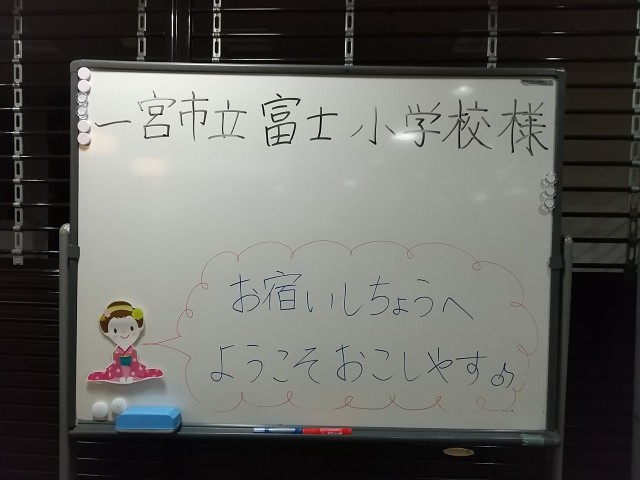 一宮市立富士小学校様
お宿いしちょうへ
ようこそおこしやす♪